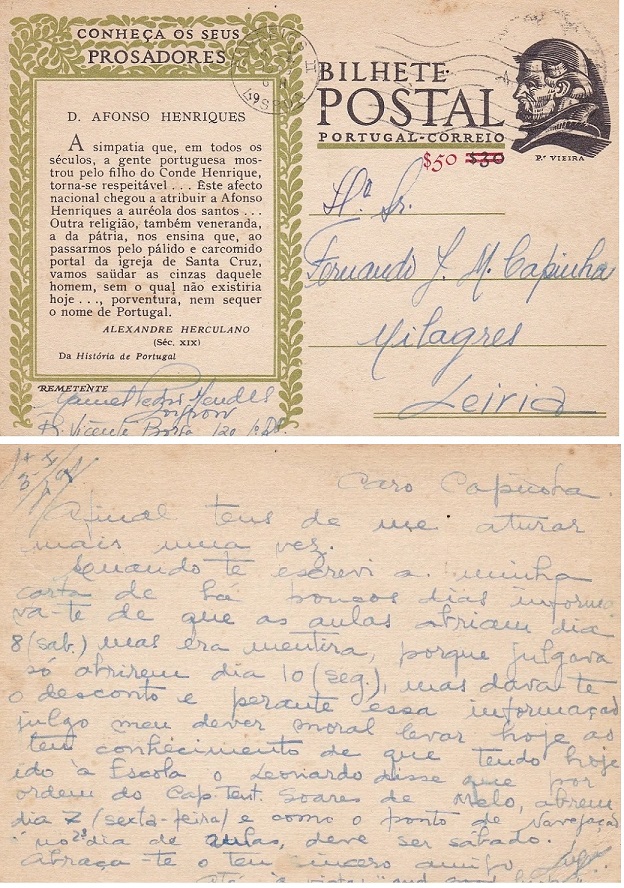 CONHEÇA OS SEUS
PROSADORES
D. AFONSO HENRIQUES
A simpatia que, em todos os
séculos, a gente portuguesa mos-
trou pelo filho do Conde Henrique,
torna-se respeitável . . . Êste afecto
nacional chegou a atribuir a Afonso
Henriques a auréola dos santos . . .
Outra religião, também veneranda,
a da pátria, nos ensina que, ao
passarmos pelo pálido e carcomido
portal da igreja de Santa Cruz,
vamos saüdar as cinzas daquele
homem, sem o qual não existiria
hoje . . ., porventura, nem sequer
o nome de Portugal.
ALEXANDRE HERCULANO
(Séc. XIX)
Da História de Portugal
REMETENTE
Manuel Pedro Mendes
R. Vicente Borga 120
BILHETE
POSTAL
PORTUGAL-CORREIO
$50 $30
P.e VIEIRA
Sr.
Fernando J. M. Capinha
Milagres
Leiria
Caro Capinha.
Afinal tens de me aturar
mais uma vez.
Quando te escrevi a minha
carta de há poucos dias informa
va-te de que as aulas abriam dia
8 (sab.) mas era mentira, porque julgava
só abrirem dia 10 (seg.), mas dava-te
o desconto e perante essa informação
julgo meu dever moral levar hoje ao
teu conhecimento de que tendo hoje
ido à Escola o Leonardo disse que por
ordem do Cap. Tent. Soares de Melo, abrem
dia 7 (sexta-feira) e como o ponto de Navegação
é no 2º dia de aulas, deve ser sábado.
Abraça-te o teu sincero amigo